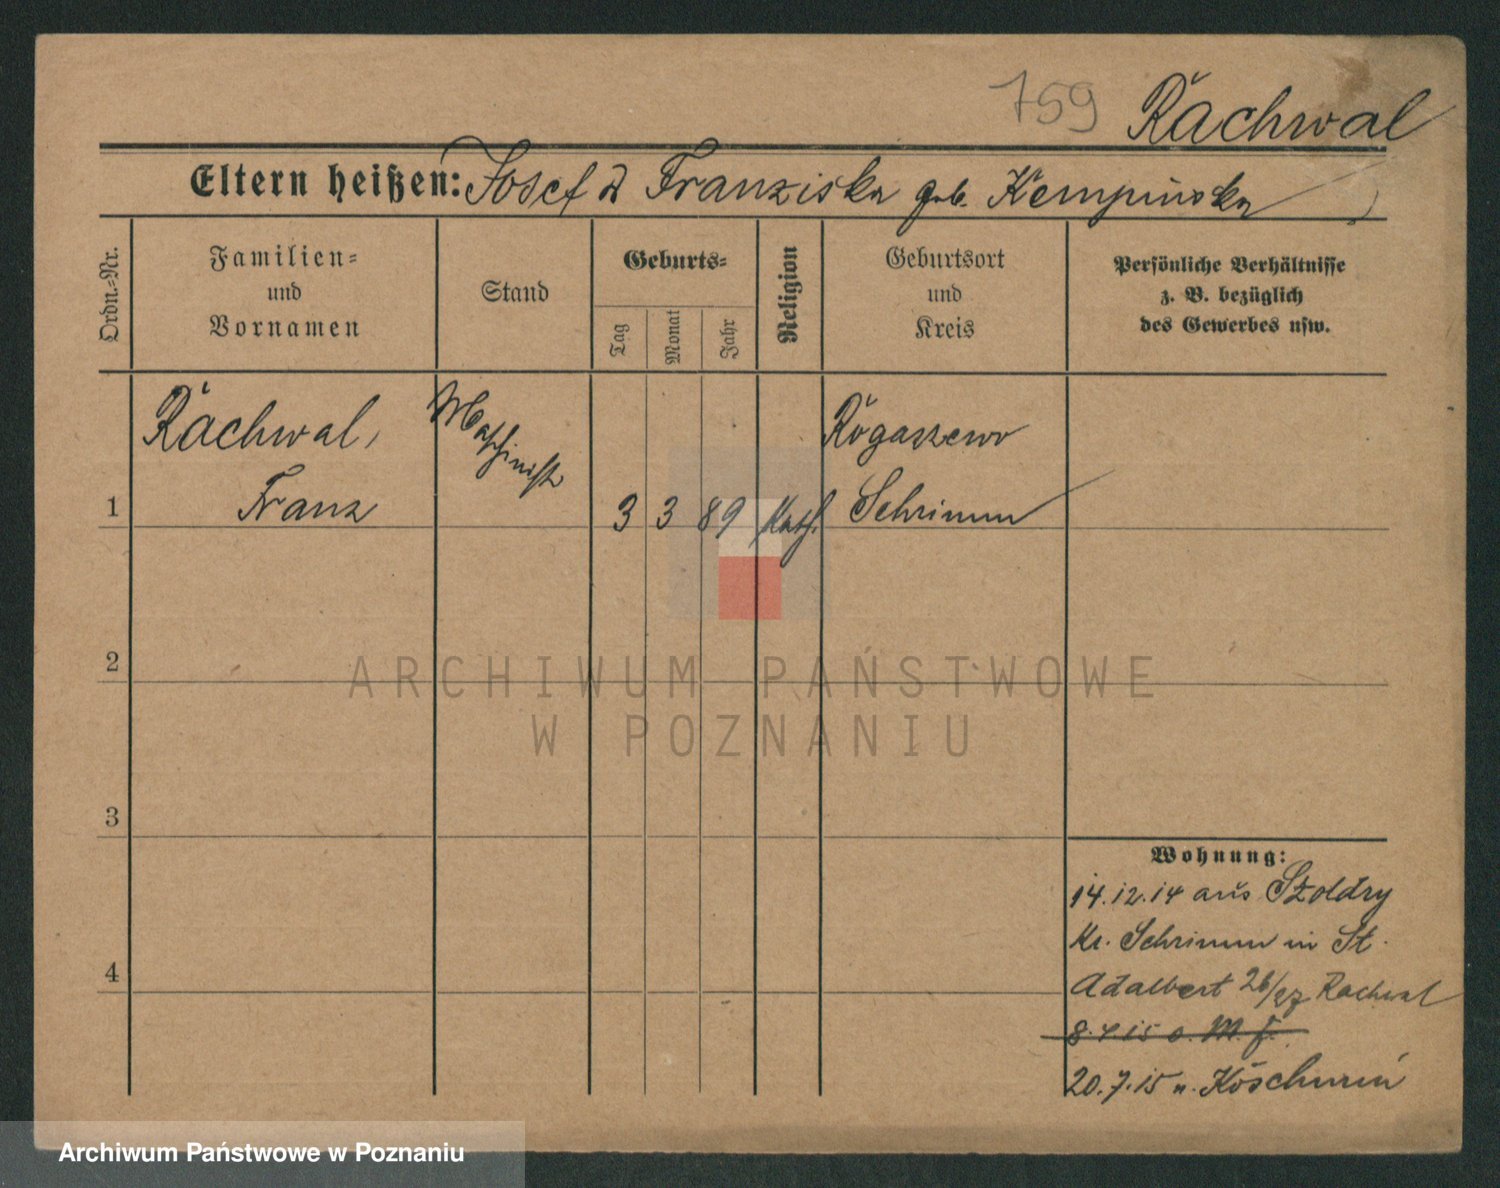 759 Rachwal
Eltern heißen: Josef & Franziska geb. Kempinska
Ordn.=Nr.
Familien=
und
Vornamen
Stand
Geburts=
Tag
Monat
Jahr
Religion
Geburtsort
und
Kreis
Persönliche Verhältnisse
z. B. bezüglich
des Gewerbes usw.
Rachwal,
Franz
Maschinist
1
3 3 89 Kath.
Rogaszewo
Schrimm
2
3
4
Wohnung:
14.12.14 aus Szoldry
Kr. Schrimm in St.
Adalbert 26/27 Rachwal
20.7.15 n. Koschmin
ARCHIWUM PAŃSTWOWE
W POZNANIU
Archiwum Państwowe w Poznaniu